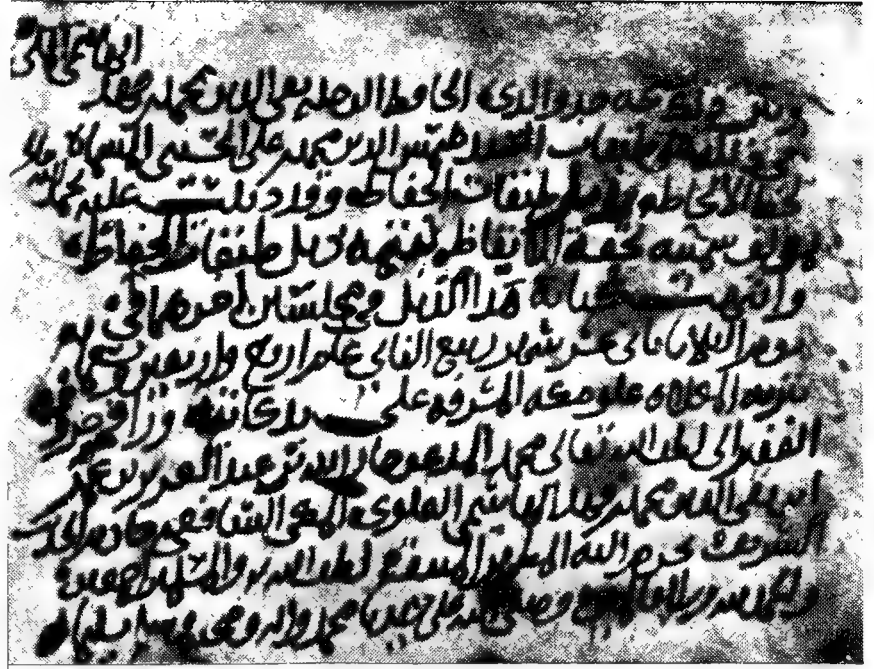 الهاشمي المكي
جد والدي الحافظ الرحلة تقي الدين محمد بن فهد
على طبقات السيد شمس الدين محمد بن علي الحسيني المسماة
لحظ الالحاظ بذيل طبقات الحفاظ وقد ذيلت عليه بحمد الله
بمؤلف سميته تحفة الايقاظ بتتمة ذيل طبقات الحفاظ
وانتهت كتابة هذا الذيل في مجلسين اخرهما في
يوم الثلاثا ثاني عشر شهر ربيع الثاني عام اربع واربعين وتسعمائة
المعلاه علو مكه المشرفه على يد كاتبه
الفقير الى لطف الله تعالى محمد المدعو جار الله بن عبد العزيز بن عمر
ابن تقي الدين محمد بن فهد الهاشمي العلوي المكي الشافعي خادم الحديث
الشريف بحرم الله المطهر المنيف لطف الله به والمسلمين اجمعين
والحمد لله رب العالمين وصلى الله على سيدنا محمد واله وصحبه وسلم تسليما